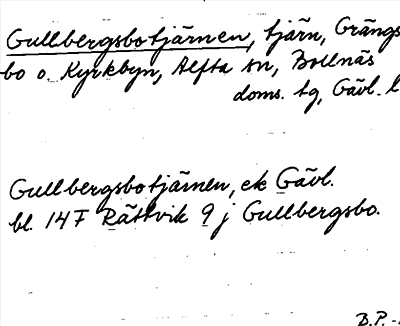 Gullbergsbotjärnen, tjärn, Grängs
bo o. Kyrkbyn, Alfta sn, Bollnäs
doms. tg, Gävl. l
Gullbergsbotjärnen, ek Gävl.
bl. 14 F Rättvik 9 j Gullbergsbo.
B.P.-